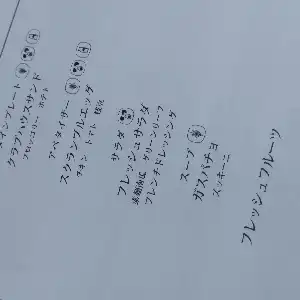 メインプレート
クラブハウスサンド
ブロッコリー ポテト
アペタイザー
スクランブルエッグ
チキン トマト 枝豆
サラダ
フレッシュサラダ
糸島海塩 グリーンリーフ
フレンチドレッシング
スープ
ガスパチョ
ズッキーニ
フレッシュフルーツ